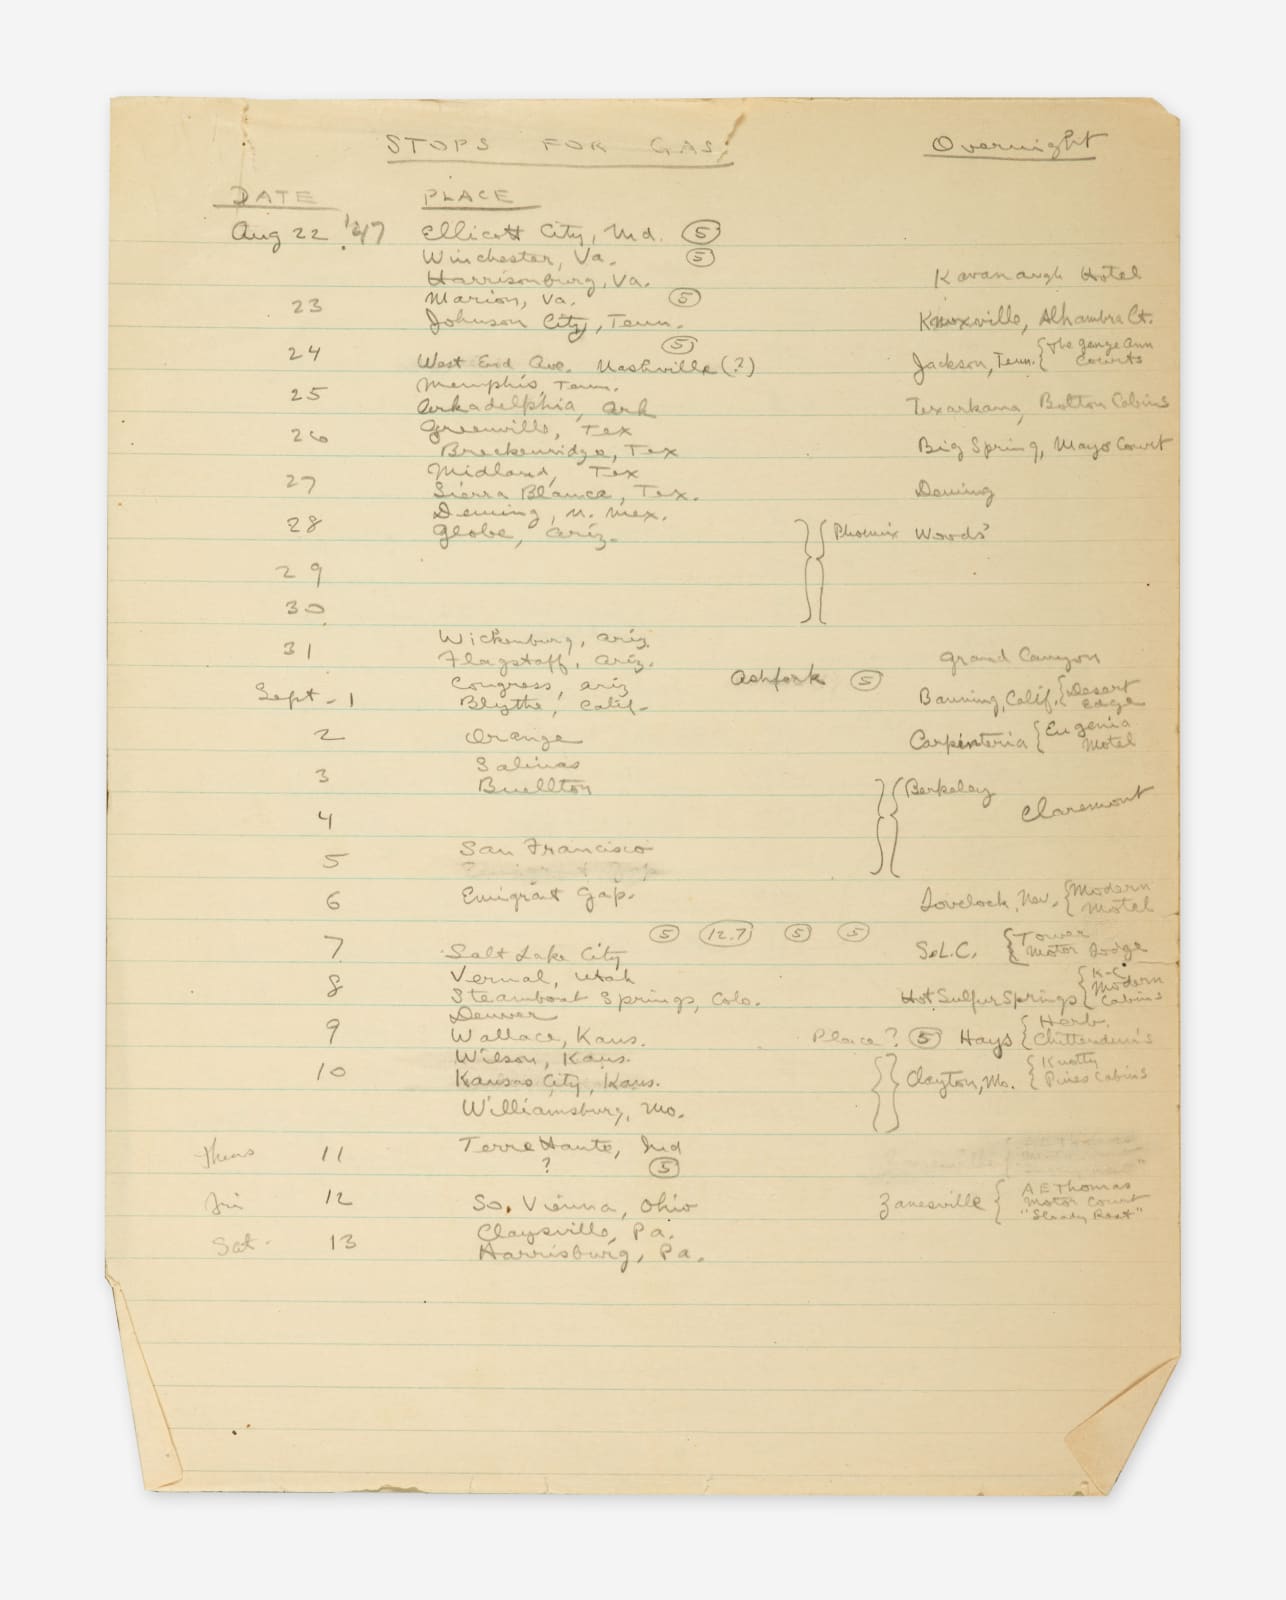 STOPS FOR GAS Overnight
DATE PLACE
Aug 22 '47 Ellicott City, Md. 5
Winchester, Va. 5
Harrisonburg, Va. Kavanaugh Hotel
Marion, Va. 5
23 Johnson City, Tenn. Knoxville, Alhambra Ct.
5
24 West End Ave. Nashville (?) Jackson, Tenn. { The George Ann Courts
Memphis, Tenn.
25 Arkadelphia, Ark Texarkana, Bolton Cabins
Greenville, Tex
26 Breckenridge, Tex Big Spring, Mayo Court
Midland, Tex
27 Sierra Blanca, Tex. Deming
Deming, N. Mex.
28 Globe, Ariz. } { Phoenix Woods'
29
30
Wickenburg, Ariz.
31 Flagstaff, Ariz. Grand Canyon
Congress, Ariz Ashfork 5
Sept - 1 Blythe, Calif- Banning, Calif. { Desert Edge
2 Orange Carpinteria { Eugenia Motel
Salinas
3 Buellton } { Berkeley Claremont
4
5 San Francisco
6 Emigrant Gap. Lovelock, Nev. { Modern Motel
5 12.7 5 5
7 Salt Lake City S.L.C. { Tower Motor Lodge
Vernal, Utah
8 Steamboat Springs, Colo. Hot Sulfur Springs { K-C Modern Cabins
Denver
9 Wallace, Kans. Place? 5 Hays { Herb. Chittenden's
Wilson, Kans.
10 Kansas City, Kans. } { Clayton, Mo. { Knotty Pines Cabins
Williamsburg, Mo.
Thurs 11 Terre Haute, Ind
? 5
Fri 12 So. Vienna, Ohio Zanesville { A E Thomas Motor Court "Steady Rest"
Claysville, Pa.
Sat. 13 Harrisburg, Pa.